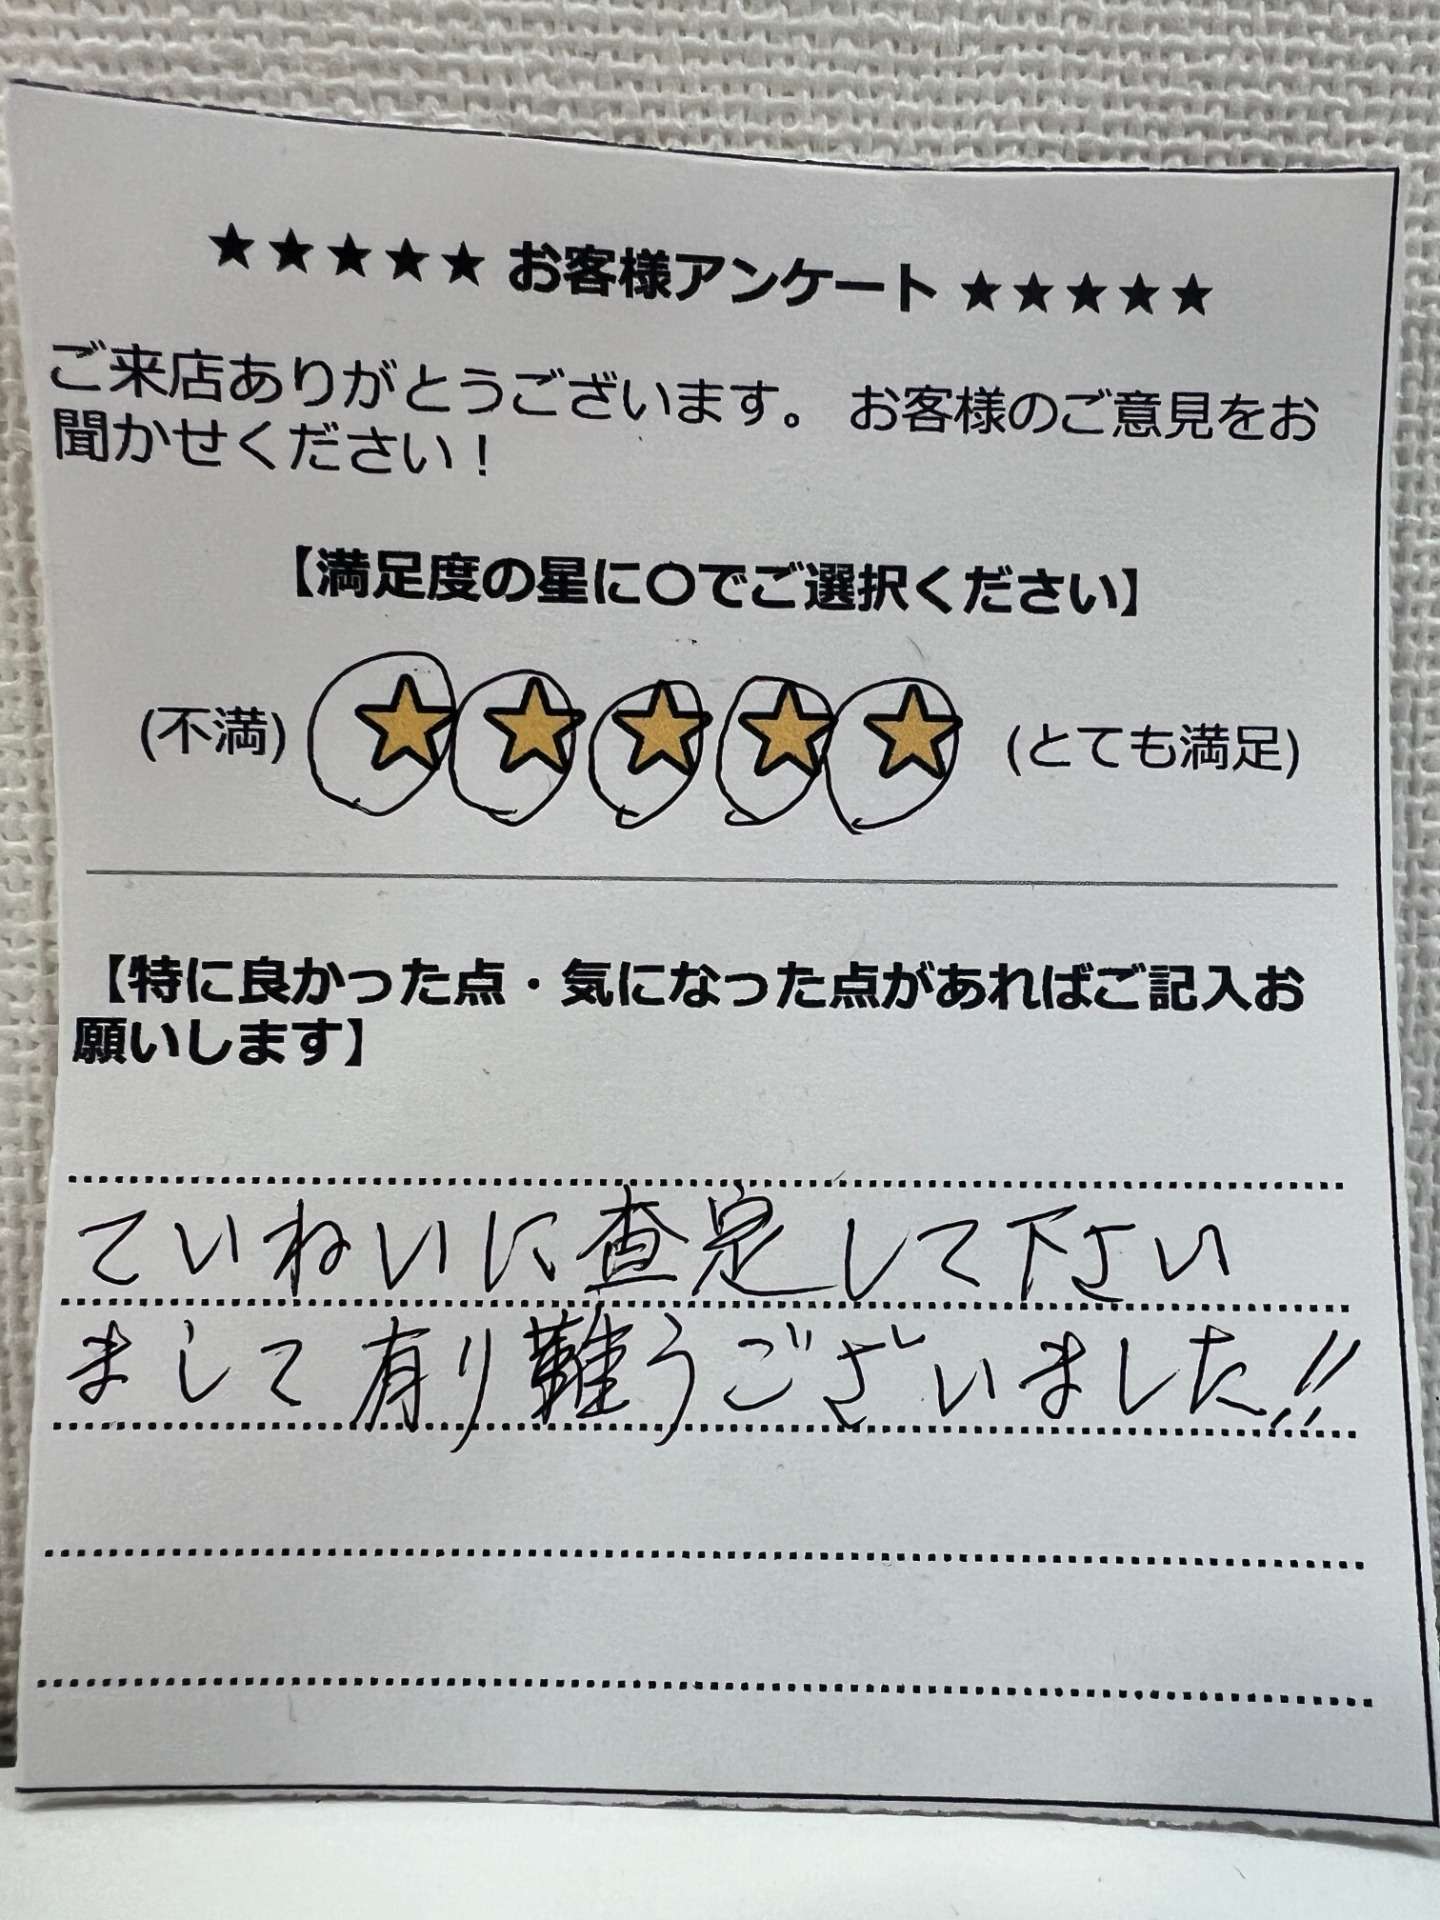 ★★★★★ お客様アンケート ★★★★★
ご来店ありがとうございます。 お客様のご意見をお
聞かせください！
【満足度の星に〇でご選択ください】
(不満) ★★★★★ (とても満足)
【特に良かった点・気になった点があればご記入お
願いします】
ていねいに査定して下さい
まして有り難うございました!!